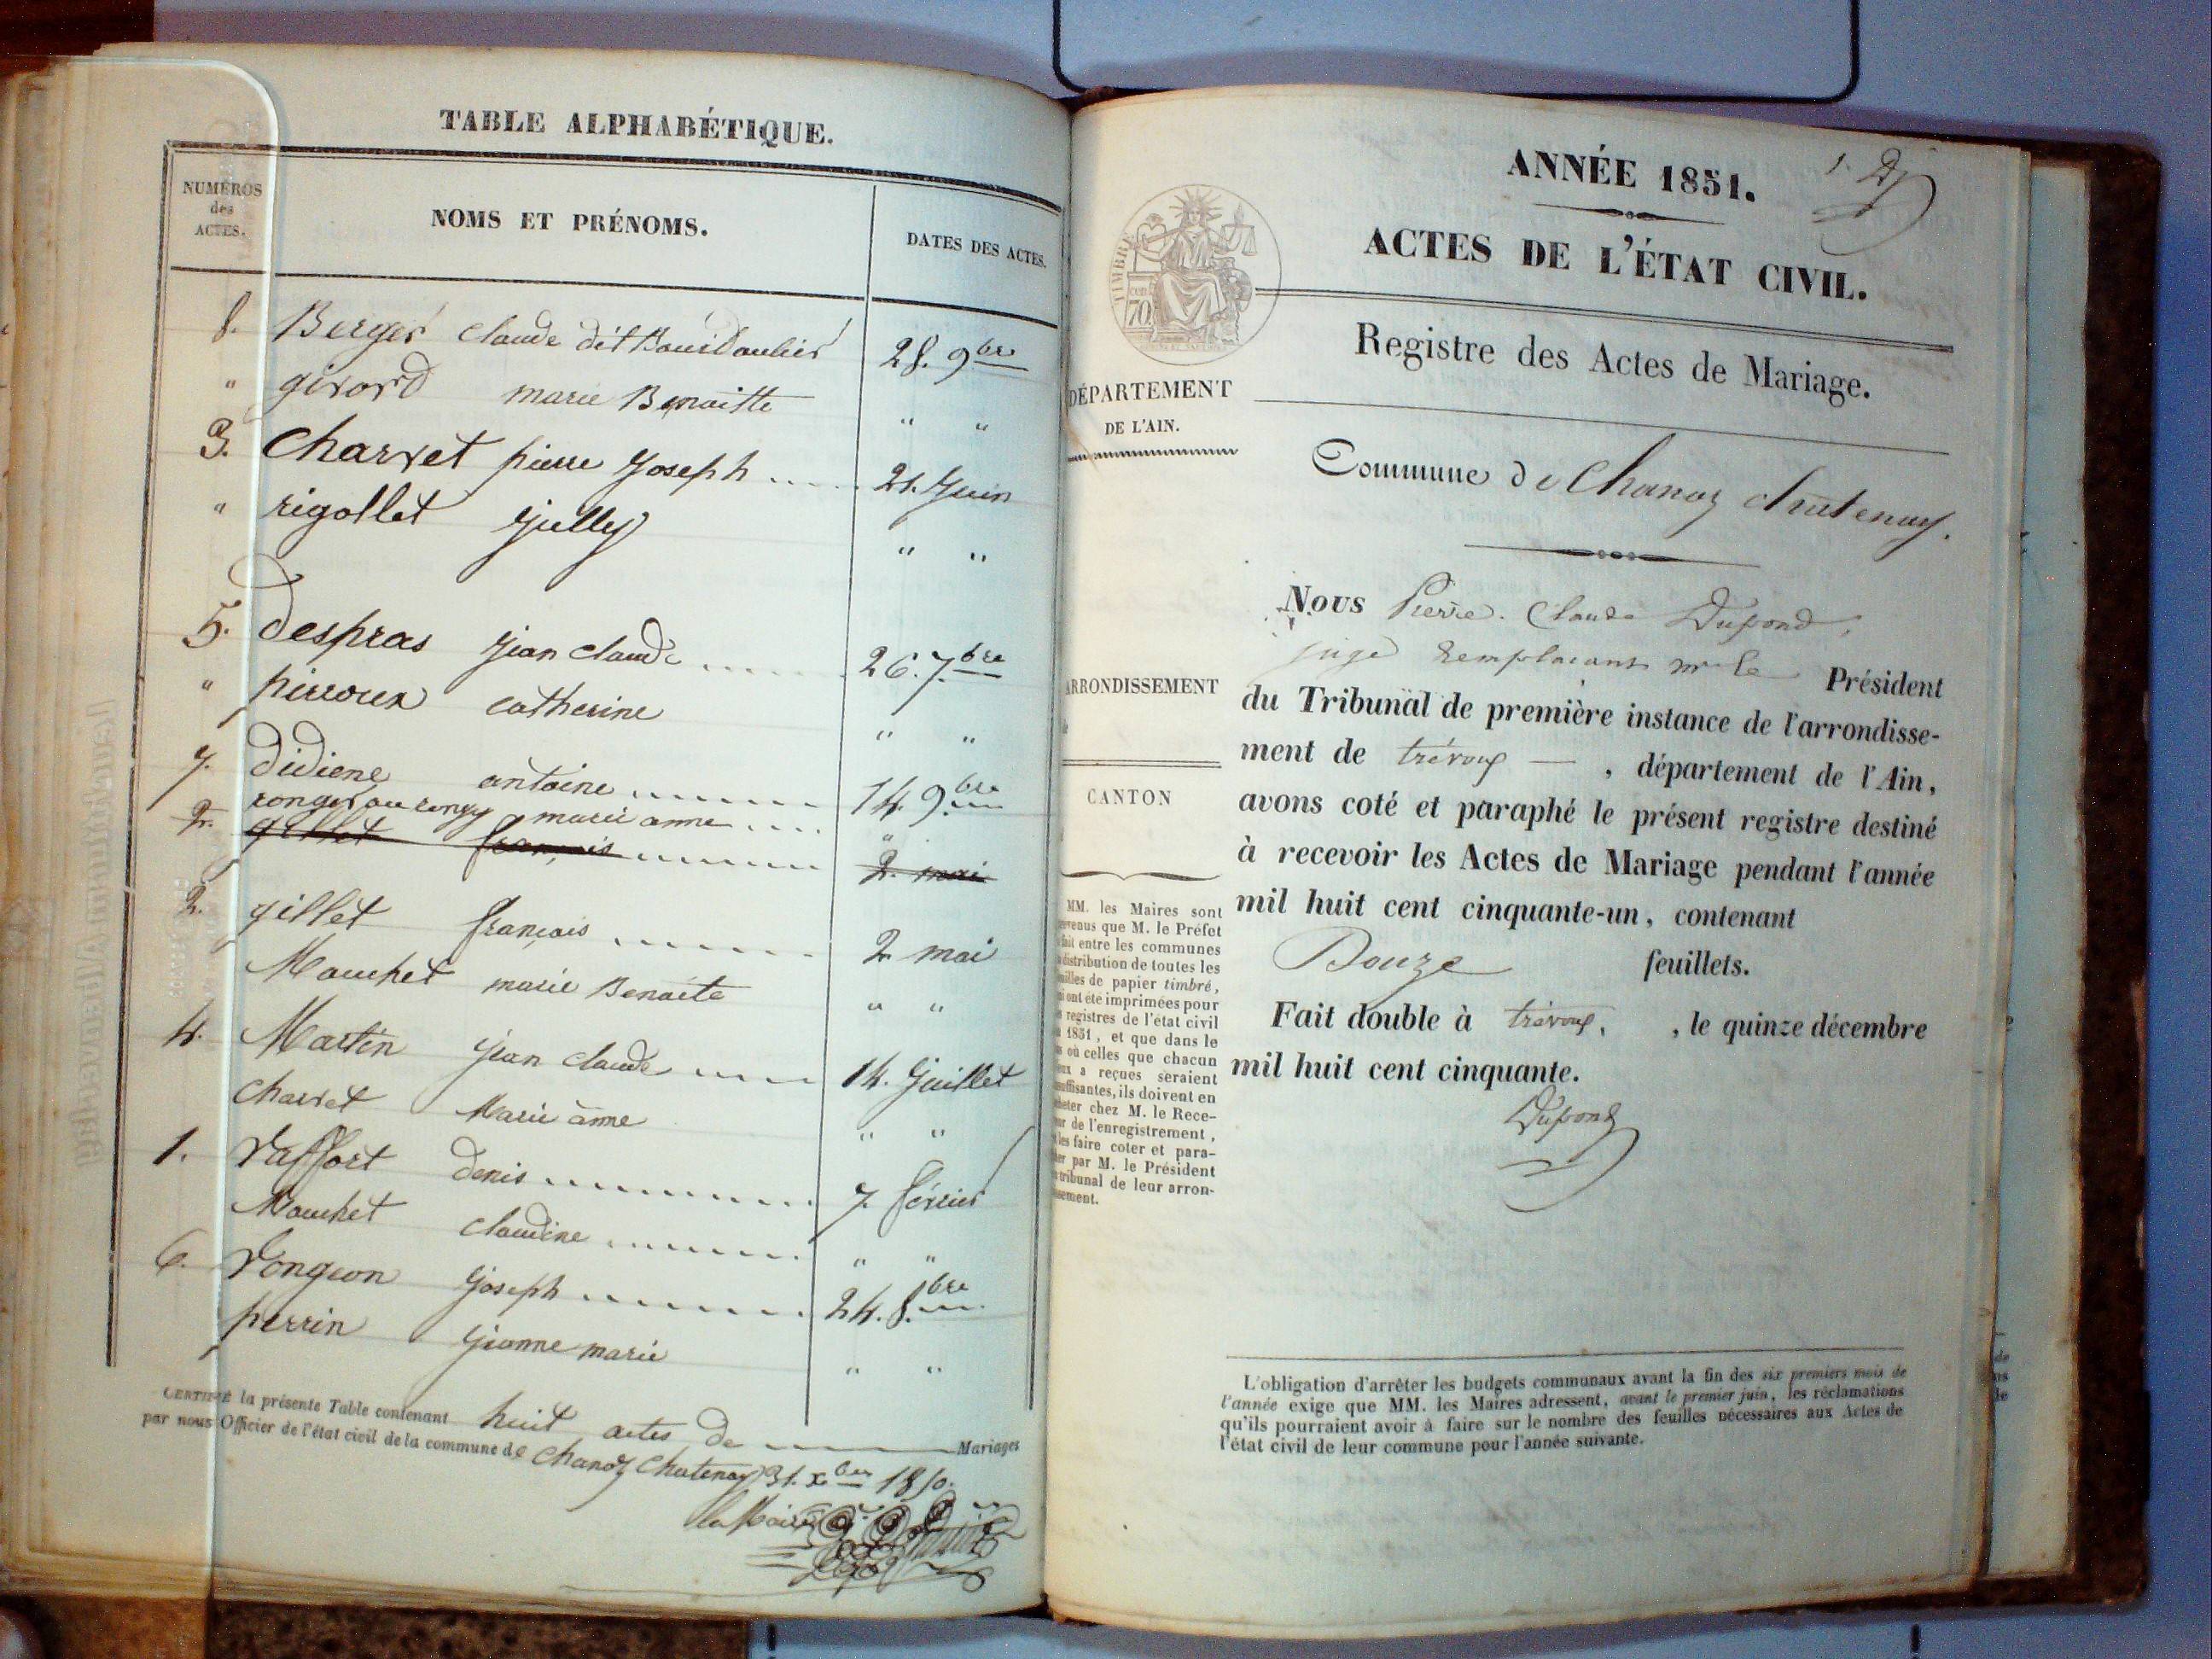 TABLE ALPHABÉTIQUE.
NUMÉROS
des
ACTES.
NOMS ET PRÉNOMS.
DATES DES ACTES.
8. Berger Claude dit 28. 9bre
" girord marie Benoitte " "
3. Charvet pierre Joseph .... 21. Juin
" rigollet Jully " "
5. despras Jean claude ..... 26. 7bre
" perroux catherine " "
7. didiene antoine ....... 14. 9bre
ronger ou rongy marie anne .... "
2. gillet françois ....... 2. mai
2. gillet françois ...... 2 mai
Mouchet marie Benoite " "
4. Martin Jean claude .... 14. Juillet
Charvet Marie anne " "
1. Vaffort denis ......... 7. février
Mouchet claudine ....... " "
6. Vongeon Joseph ........ 24. 8bre
perrin Jeanne marie " "
CERTIFIÉ la présente Table contenant huit actes de Mariages
par nous Officier de l'état civil de la commune de Chanoz Chatenay 31. xbre 1850.
le Maire
ANNÉE 1851.
ACTES DE L'ÉTAT CIVIL.
TIMBRE
70
Registre des Actes de Mariage.
DÉPARTEMENT
DE L'AIN.
Commune de Chanoz chatenay.
Nous Pierre. Claude Dupond,
juge remplaçant mr le Président
ARRONDISSEMENT
du Tribunal de première instance de l'arrondisse-
ment de trévoux — , département de l'Ain,
CANTON
avons coté et paraphé le présent registre destiné
à recevoir les Actes de Mariage pendant l'année
mil huit cent cinquante-un, contenant
Douze feuillets.
Fait double à trévoux, , le quinze décembre
mil huit cent cinquante.
Dupond
MM. les Maires sont
que M. le Préfet
fait entre les communes
distribution de toutes les
de papier timbré,
ont été imprimées pour
registres de l'état civil
1851, et que dans le
où celles que chacun
a reçues seraient
ils doivent en
chez M. le Rece-
de l'enregistrement,
les faire coter et para-
par M. le Président
tribunal de leur arron-
L'obligation d'arrêter les budgets communaux avant la fin des six premiers mois de
l'année exige que MM. les Maires adressent, avant le premier juin, les réclamations
qu'ils pourraient avoir à faire sur le nombre des feuilles nécessaires aux Actes de
l'état civil de leur commune pour l'année suivante.